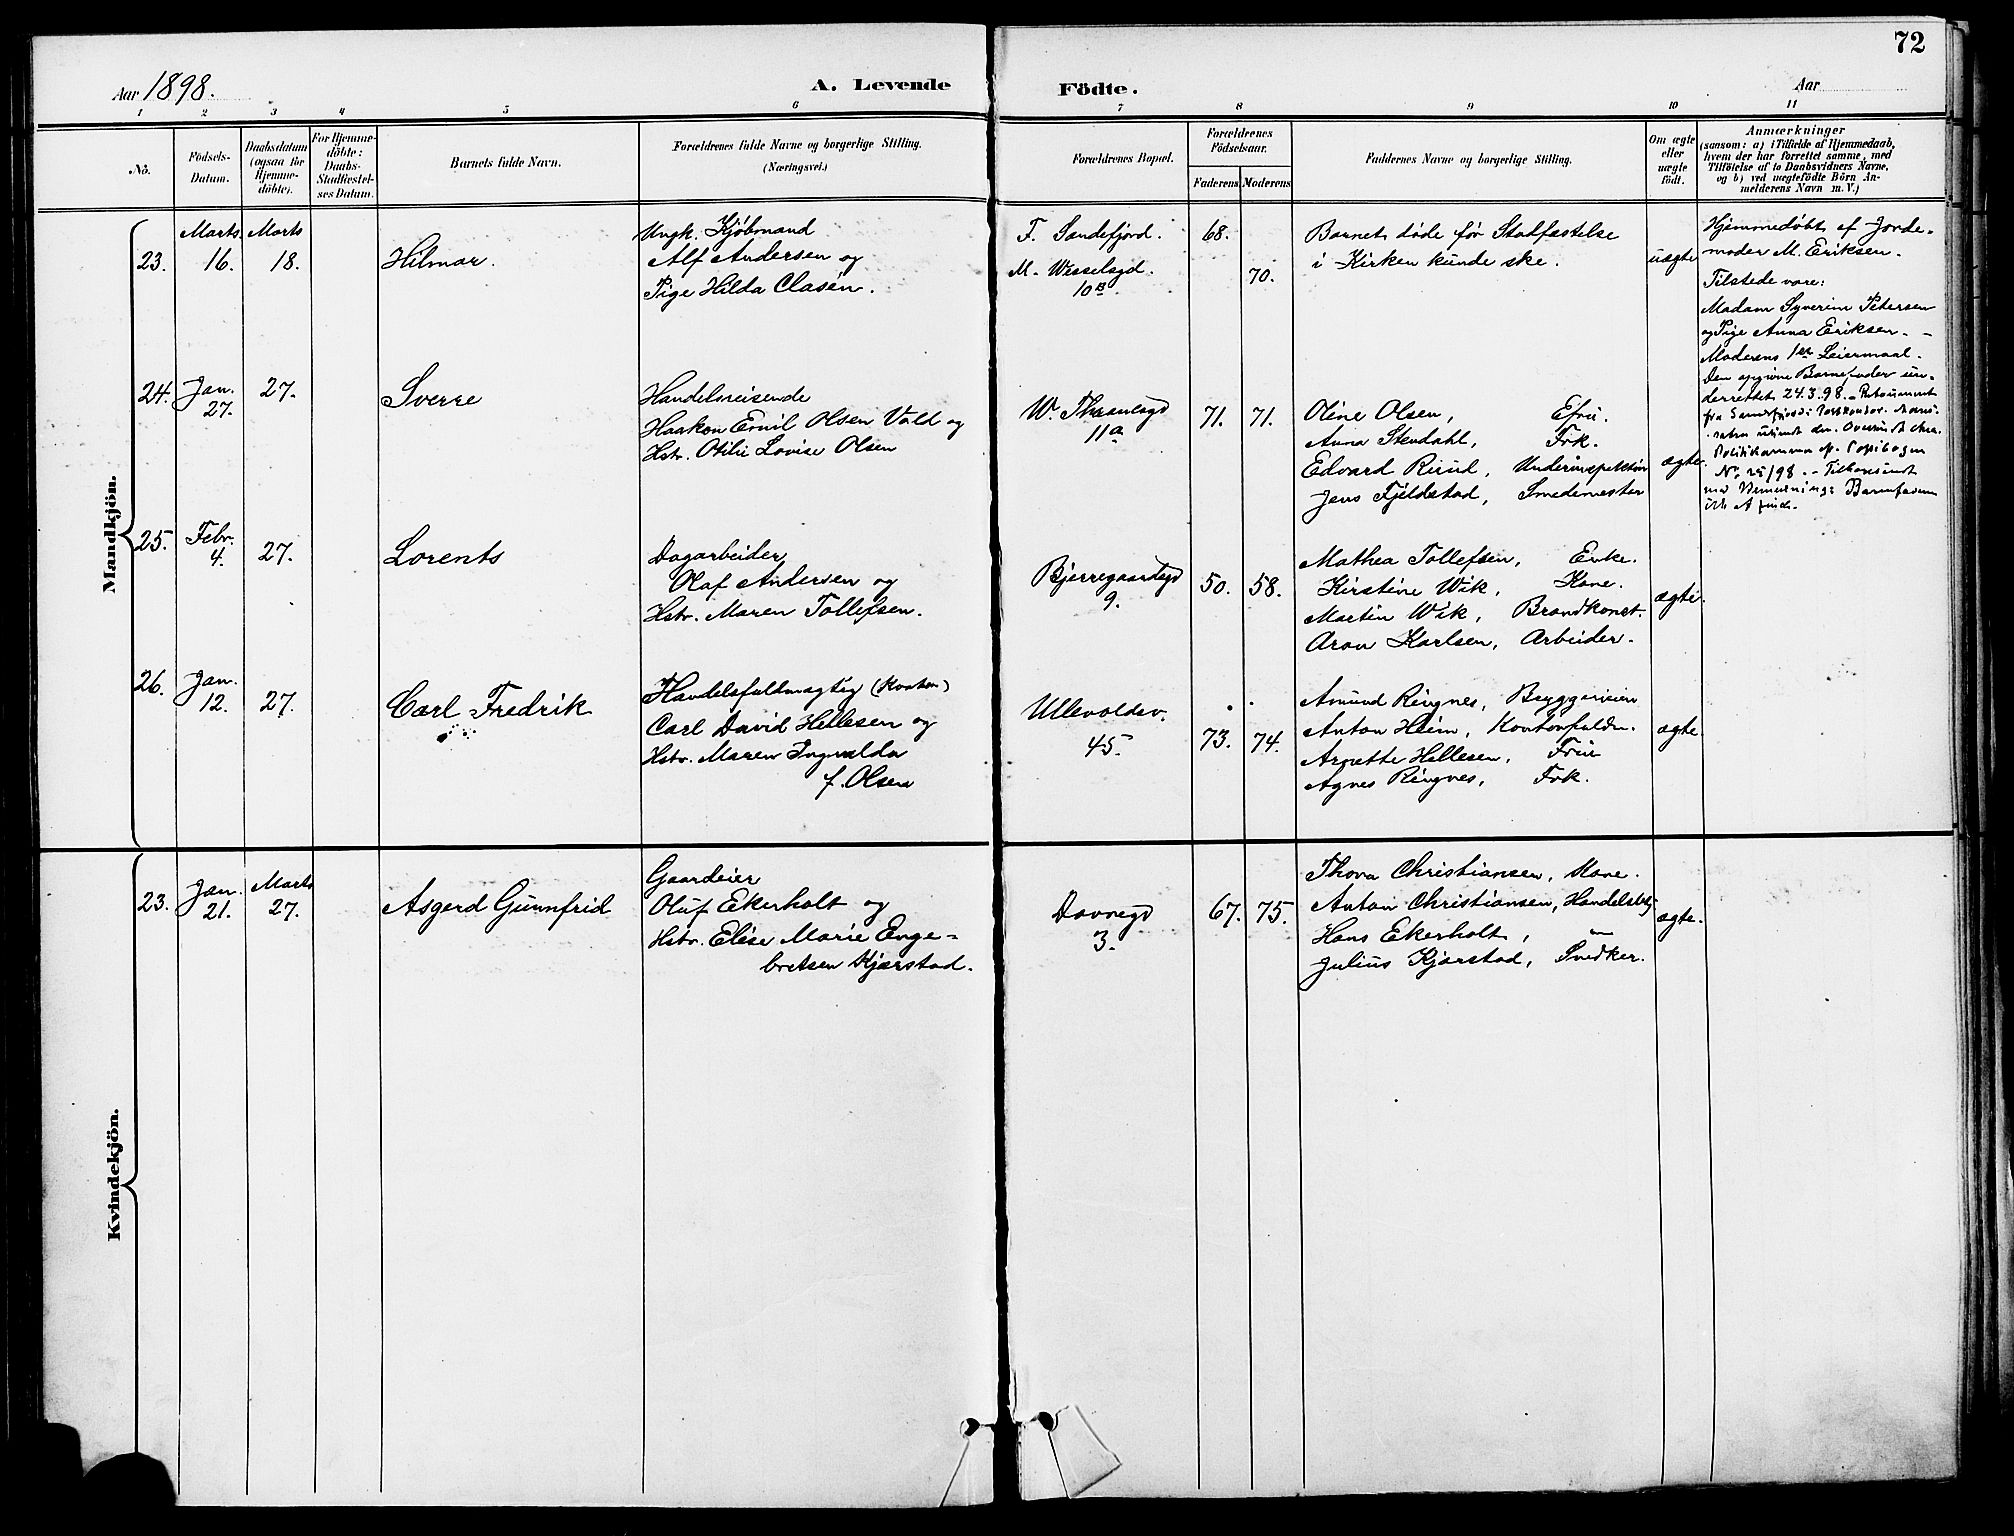 72
Aar 1898.
A. Levende Födte.
Aar
1 2 3 4 5 6 7 8 9 10 11
No.
Födsels-Datum.
Daabsdatum (ogsaa for Hjemme-döbte).
For Hjemme-döbte: Daabs-Stadfæstel-ses Datum.
Barnets fulde Navn.
Forældrenes fulde Navne og borgerlige Stilling.
(Næringsvei.)
Forældrenes Bopæl.
Forældrenes Födselsaar.
Faderens Moderens
Faddernes Navne og borgerlige Stilling.
Om ægte eller uægte födt.
Anmærkninger
(saasom: a) i Tilfælde af Hjemmedaab,
hvem der har forrettet samme, med
Tilföielse af to Daabsvidners Navne,
og b) ved uægtefödte Börn An-
melderens Navn m. V.)
Mandkjön.
23.
Marts. 16.
Marts 18.
Hilmar.
Ungk. Kjøbmand
Alf Andersen og
Pige Hilda Clasén.
F. Sandefjord.
M. Wesselsgd.
10B
68.
70.
Barnet døde før Stadfæstelse
i Kirken kunde ske.
uægte
Hjemmedøbt af Jorde-
moder M. Eriksen.
Tilstede vare:
Madam Syverine Petersen
og Pige Anna Eriksen. -
Moderens 1ste Leiermaal.
Den opgivne Barnefader un-
derrettet 24.3.98.
24.
Jan. 27.
27.
Sverre
Handelsreisende
Haakon Emil Olsen Vold og
Hstr. Otilie Lovise Olsen
W. Thranesgd
11a
71.
71.
Oline Olsen, Efru.
Anna Stendahl, Frk.
Edvard Ruud, Underinspektør
Jens Fjeldstad, Smedemester
ægte.
25.
Febr. 4.
27.
Lorents
Dagarbeider
Olaf Andersen og
Hstr. Maren Tollefsen.
Bjerregaardsgd
9.
50.
58.
Mathea Tollefsen, Enke.
Kirstine Wik, Kone.
Martin Wik, Brandkonst.
Aron Karlsen, Arbeider.
ægte.
26.
Jan. 12.
27.
Carl Fredrik
Handelsfuldmægtig (Kontor)
Carl David Hellesen og
Hstr. Maren Ingvalda
f. Olsen
Ullevoldsv.
45.
73.
74.
Amund Ringnes, Bryggerieier
Anton Heim, Kontorfuldm.
Arnette Hellesen, Frue
Agnes Ringnes, Frk.
ægte
Kvindekjön.
23.
Jan. 21.
Marts 27.
Asgerd Gunnfrid
Gaardeier
Oluf Ekerholt og
Hstr. Elise Marie Enge-
bretsen Kjærstad.
Dovregd
3.
67.
75.
Thora Christiansen, Kone.
Anton Christiansen, Handelsbtj
Hans Ekerholt, "
Julius Kjærstad, Snedker.
ægte.